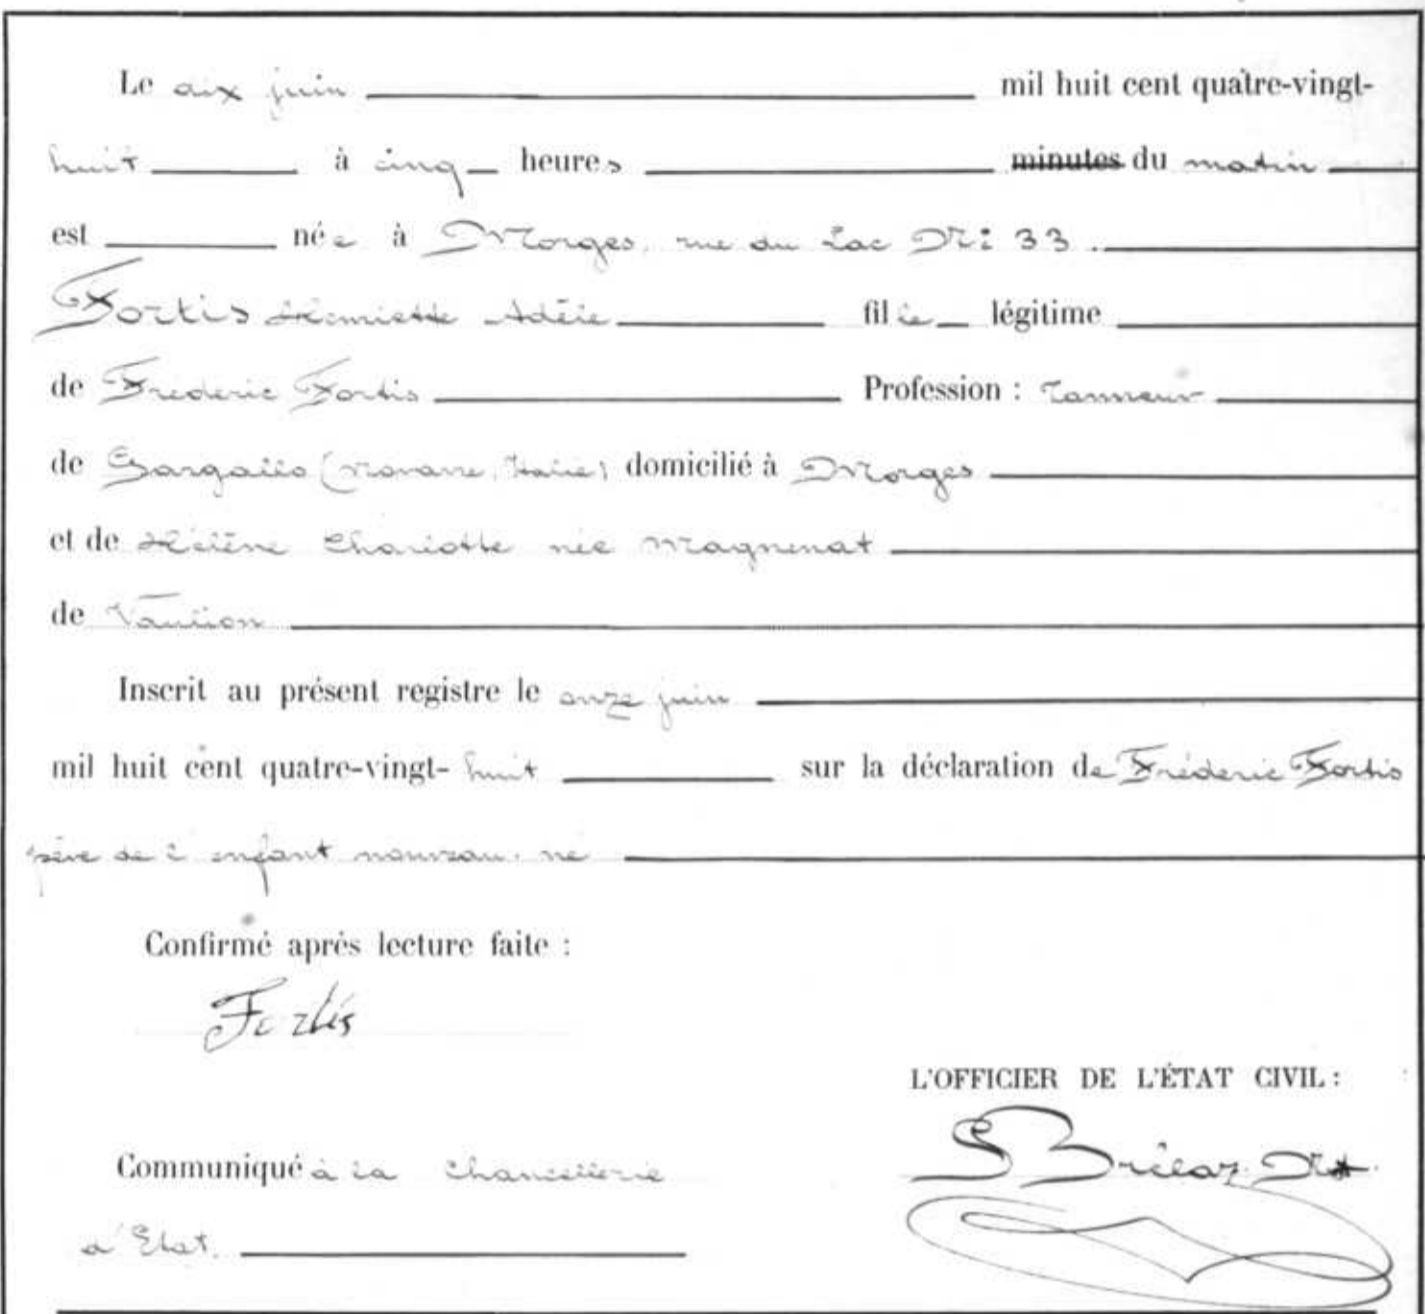 Le dix juin mil huit cent quatre-vingt-
huit à cinq heures minutes du matin
est née à Morges, rue du Lac No: 33.
Fortis Henriette Adèle fille légitime
de Frédéric Fortis Profession : Tanneur
de Gargallo (Novarre, Italie) domicilié à Morges
et de Hélène Charlotte née Magnenat
de Vaulion
Inscrit au présent registre le onze juin
mil huit cent quatre-vingt-huit sur la déclaration de Fréderic Fortis
père de l'enfant nouveau-né
Confirmé après lecture faite :
Fortis
L'OFFICIER DE L'ÉTAT CIVIL :
Brélaz
Communiqué à la Chancellerie
d'Etat.